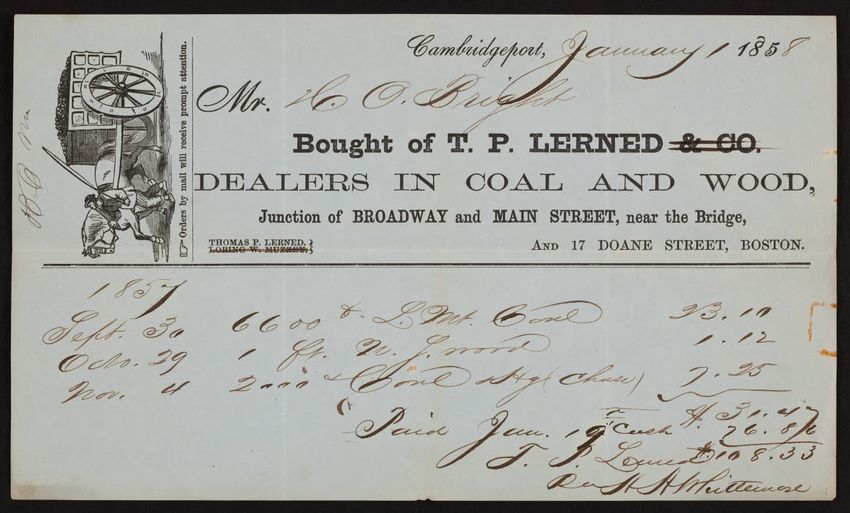 Cambridgeport, January 1 1858
Mr. H. O. Bright
Bought of T. P. LERNED & CO.
DEALERS IN COAL AND WOOD,
Junction of BROADWAY and MAIN STREET, near the Bridge,
THOMAS P. LERNED.
LORING W. MUZZEY.
AND 17 DOANE STREET, BOSTON.
☞ Orders by mail will receive prompt attention.
1857
Sept. 30 6600 L. Mt. Coal 23.10
Octo. 29 1 ft. N. S. wood 1.12
Nov. 4 2000 Coal (Chase) 7.25
$31.47
Paid Jan. 19 Cash 76.86
T. P. Lerned $108.33
Per H A Whittemore